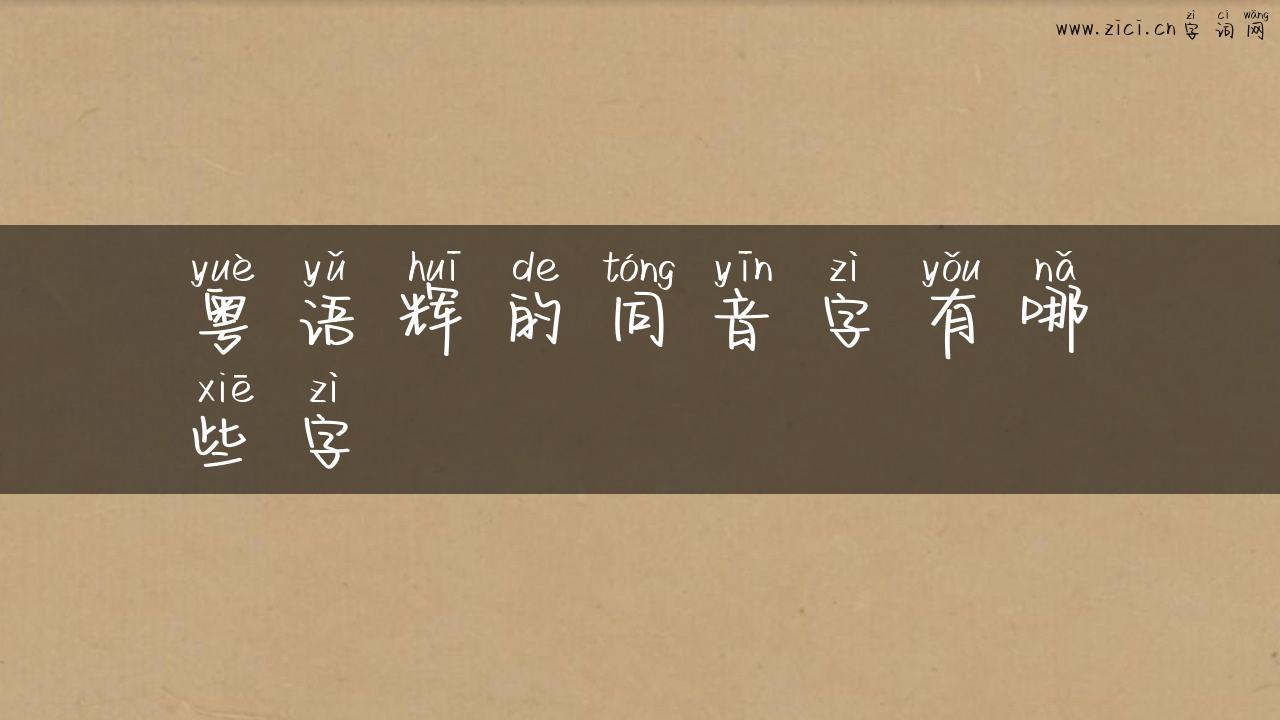 zì cí wǎng
www.zici.cn 字词网
yuè yǔ huī de tóng yīn zì yǒu nǎ
粤语辉的同音字有哪
xiē zì
些字